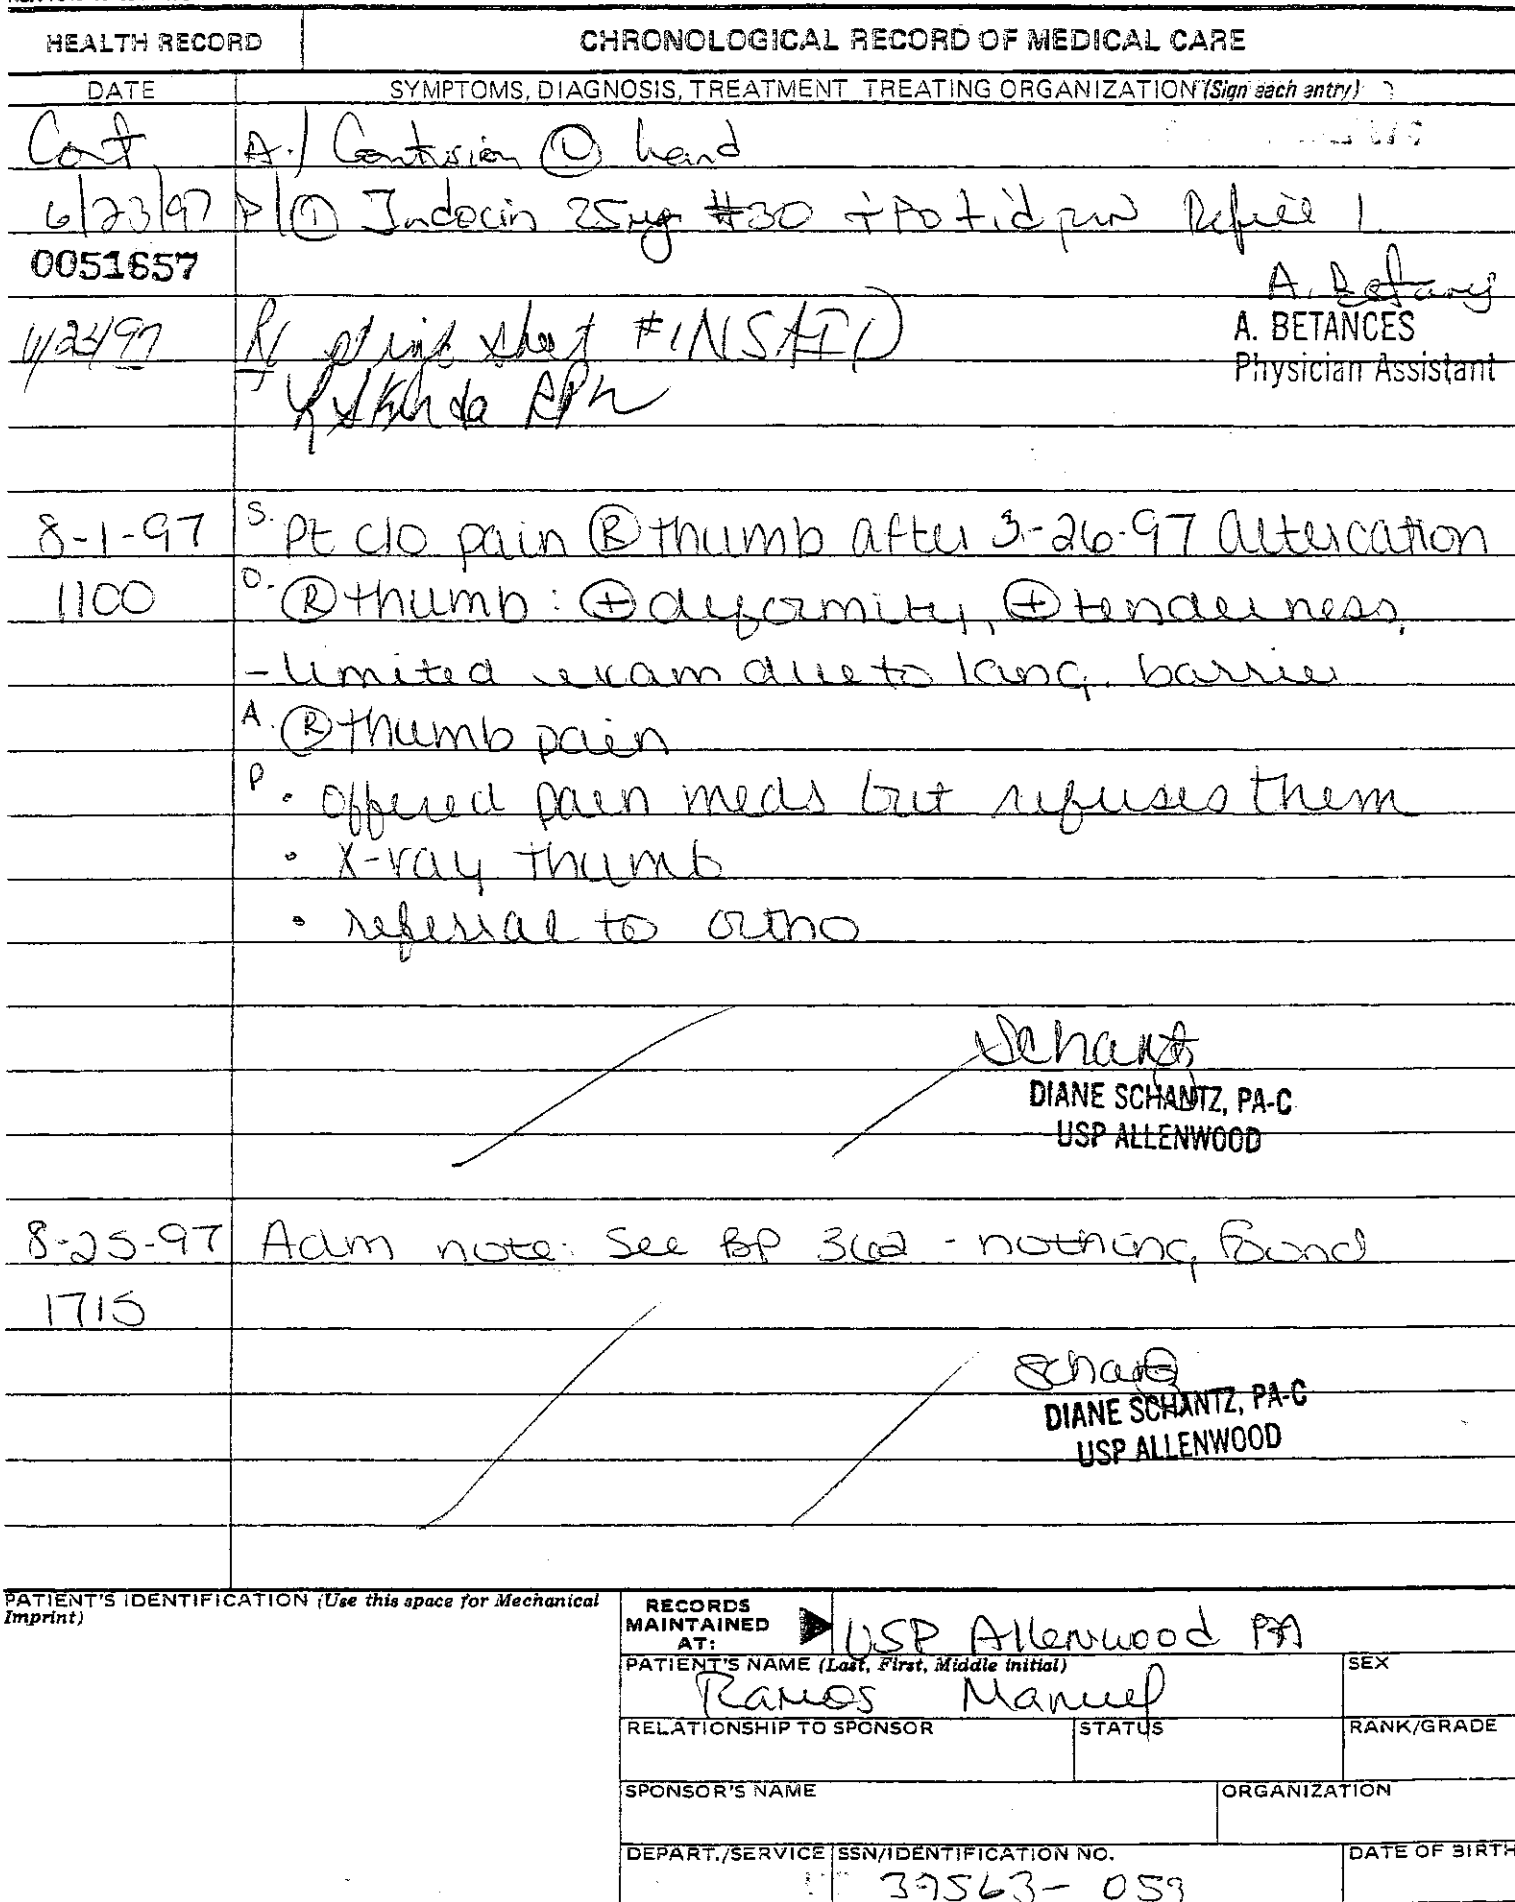 HEALTH RECORD
CHRONOLOGICAL RECORD OF MEDICAL CARE
DATE
SYMPTOMS, DIAGNOSIS, TREATMENT TREATING ORGANIZATION (Sign each entry)
Cont A./ Contusion Ⓛ hand
6/23/97 P/① Indocin 25mg #30 ṫ PO tid prn Refill 1
0051657
A. BETANCES
Physician Assistant
6/23/97 Rx pt info sheet #1 NSAID
RPh
8-1-97 S. Pt c/o pain Ⓡ thumb after 3-26-97 altercation
1100 O. Ⓡ thumb: ⊕ deformity, ⊕ tenderness,
- limited exam due to lang. barrier
A. Ⓡ thumb pain
P. • offered pain meds but refuses them
• X-ray thumb
• referral to ortho
Schantz
DIANE SCHANTZ, PA-C
USP ALLENWOOD
8-25-97 Adm note: See BP 362 - nothing found
1715
Schantz
DIANE SCHANTZ, PA-C
USP ALLENWOOD
PATIENT'S IDENTIFICATION (Use this space for Mechanical
Imprint)
RECORDS
MAINTAINED
AT:
USP Allenwood PA
PATIENT'S NAME (Last, First, Middle initial)
SEX
Ramos Manuel
RELATIONSHIP TO SPONSOR
STATUS
RANK/GRADE
SPONSOR'S NAME
ORGANIZATION
DEPART./SERVICE
SSN/IDENTIFICATION NO.
DATE OF BIRTH
39563-059